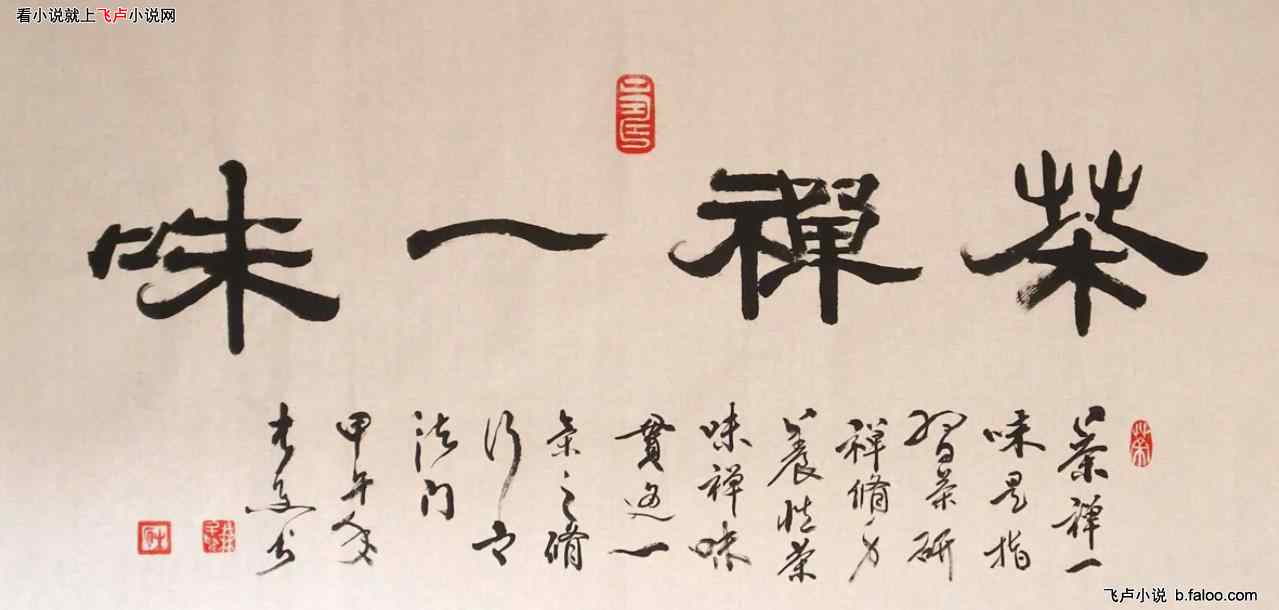 看小说就上飞卢小说网
茶禅一味
茶禅一
味是指
習茶研
禅脩身
養性茶
味禅味
貫迩一
条之脩
行之
法门
甲午年
书
飞卢小说 b.faloo.com